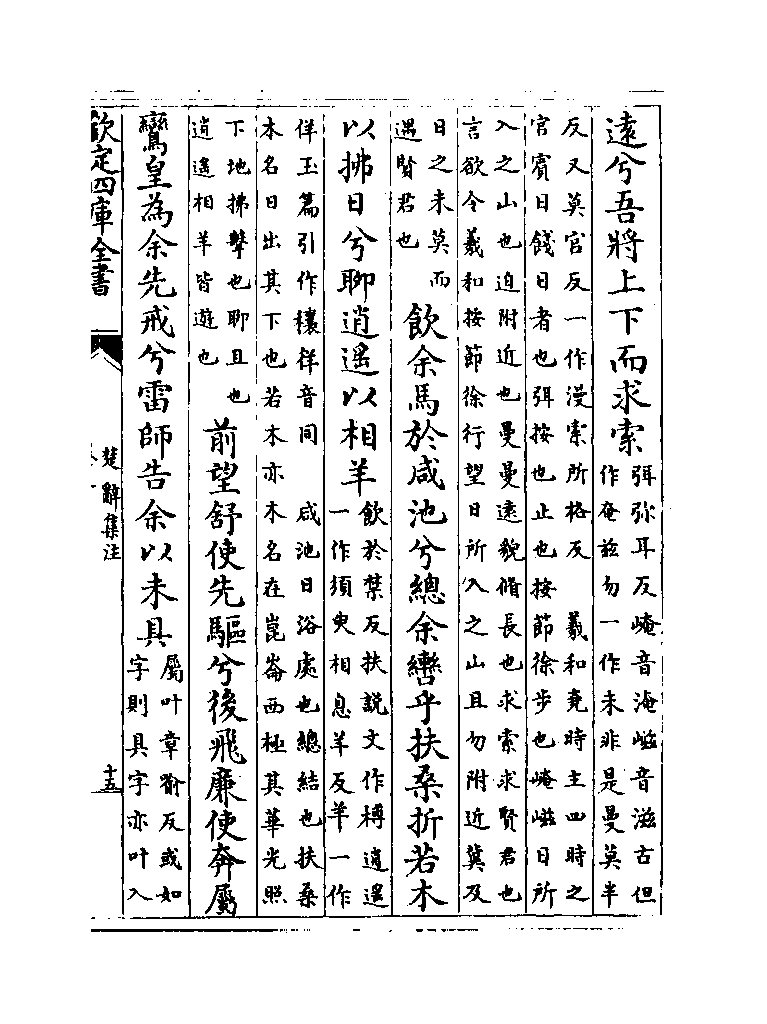 遠兮吾將上下而求索
弭弥耳反崦音淹嵫音滋古但
作奄兹勿一作未非是曼莫半
反又莫官反一作漫索所格反　羲和堯時主四時之
官賓日餞日者也弭按也止也按節徐步也崦嵫日所
入之山也迫附近也曼曼遠貌脩長也求索求賢君也
言欲令羲和按節徐行望日所入之山且勿附近冀及
日之未莫而
遇賢君也
飲余馬於咸池兮總余轡乎扶桑折若木
以拂日兮聊逍遥以相羊
飲於禁反扶説文作榑逍遥
一作須臾相息羊反羊一作
佯玉篇引作穰徉音同　咸池日浴處也總結也扶桑
木名日出其下也若木亦木名在崑崙西極其華光照
下地拂擊也聊且也
逍遥相羊皆遊也
前望舒使先驅兮後飛廉使奔屬
鸞皇為余先戒兮雷師告余以未具
屬叶章喻反或如
字則具字亦叶入
欽定四庫全書
楚辭集注
十五